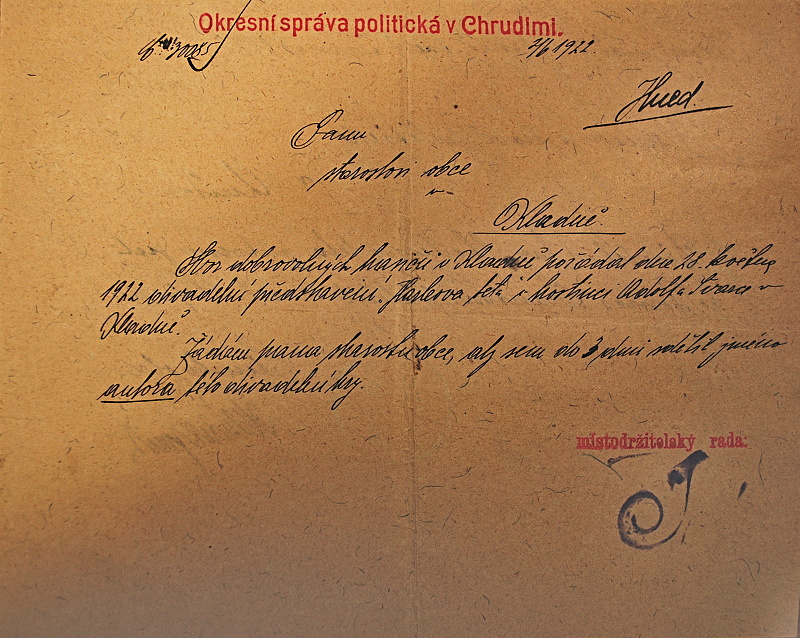 Okresní správa politická v Chrudimi.
7/6 1922.
Hned.
Panu
starostovi obce
v
Kladně.
Sbor dobrovolných hasičů v Kladně pořádal dne 28. května
1922 divadelní představení teta v hostinci Adolfa Švarce v
Kladně.
Žádám pana starostu obce, aby sem do 3 dnů sdělil jméno
autora této divadelní hry.
místodržitelský rada: